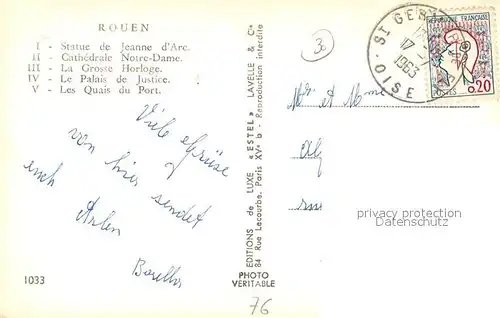 ROUEN
I - Statue de Jeanne d'Arc.
II - Cathédrale Notre-Dame.
III - La Grosse Horloge.
IV - Le Palais de Justice.
V - Les Quais du Port.
Viele Grüsse
von hier sendet
euch
1033
EDITIONS de LUXE «ESTEL» LAVELLE & Cie
84 Rue Lecourbe, Paris XVe - Reproduction interdite
PHOTO
VERITABLE
76
30
ST GER
17
1963
OISE
REPUBLIQUE FRANÇAISE
POSTES 0,20
et Mme
rue
property protection
oldthing.com